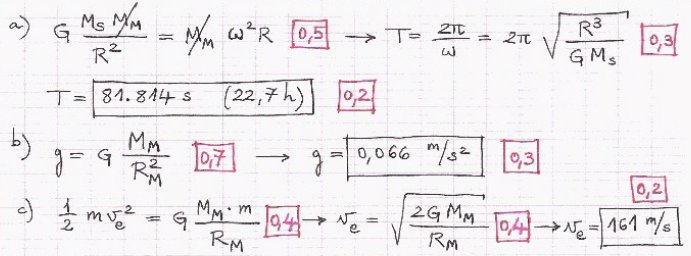 a) G M_S M_M / R² = M_M ω² R 0,5 → T = 2π/ω = 2π √(R³ / G M_S) 0,3
T = 81.814 s (22,7 h) 0,2
b) g = G M_M / R_M² 0,7 → g = 0,066 m/s² 0,3
c) ½ m v_e² = G M_M · m / R_M 0,4 → v_e = √(2 G M_M / R_M) 0,4 → v_e = 161 m/s 0,2